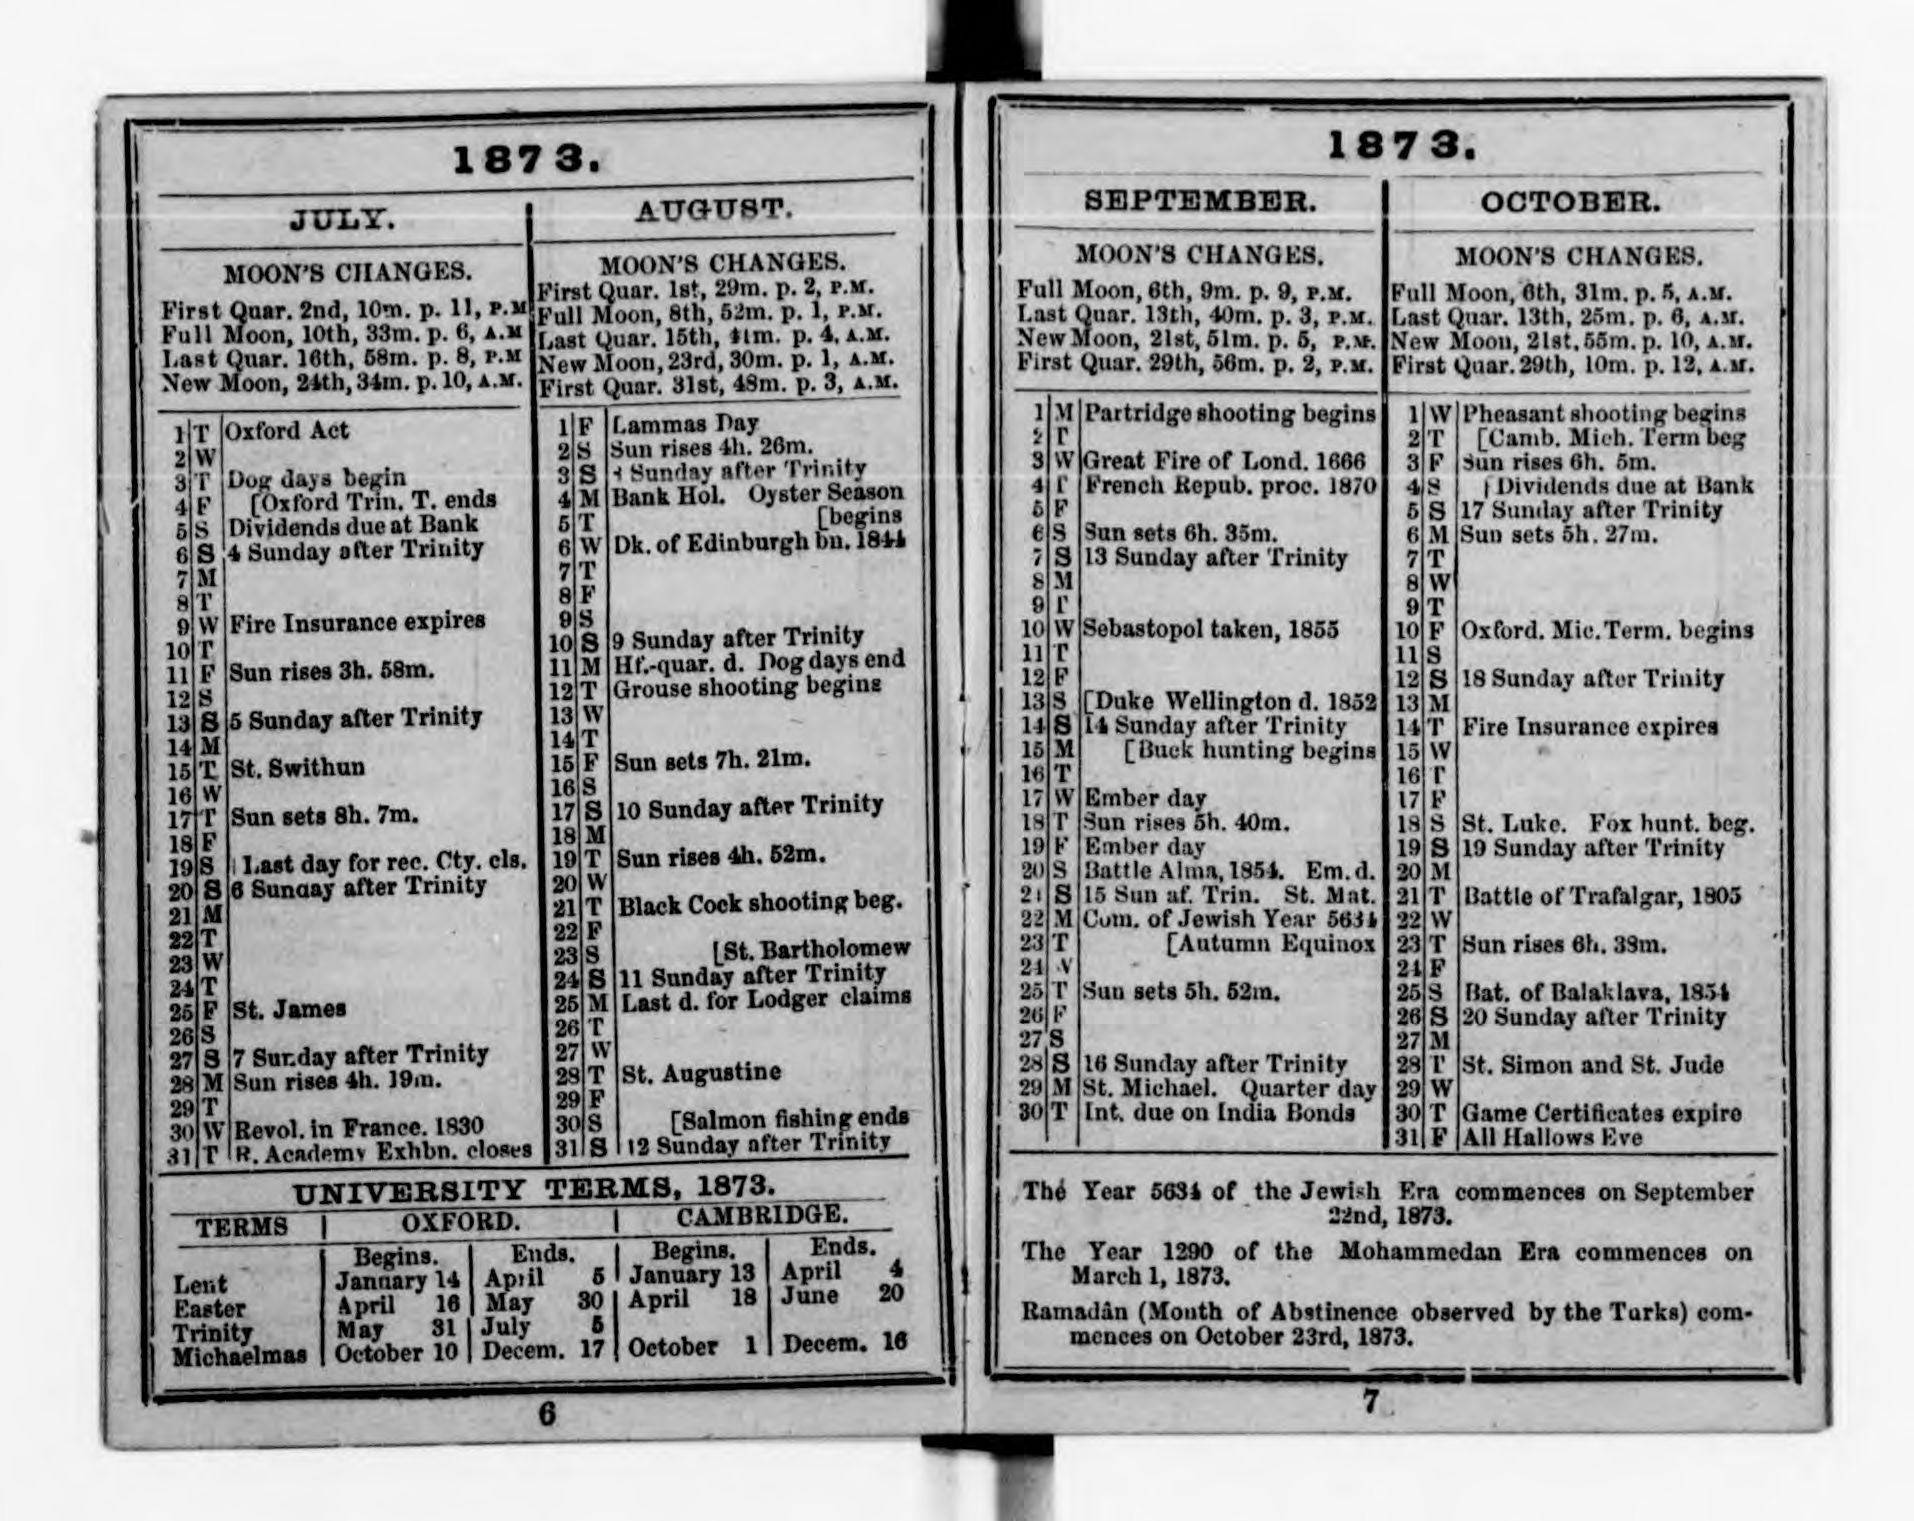 1873.
JULY.
MOON'S CHANGES.
First Quar. 2nd, 10m. p. 11, P.M
Full Moon, 10th, 33m. p. 6, A.M
Last Quar. 16th, 58m. p. 8, P.M
New Moon, 24th, 34m. p. 10, A.M.
1 T Oxford Act
2 W
3 T Dog days begin
4 F [Oxford Trin. T. ends
5 S Dividends due at Bank
6 S 4 Sunday after Trinity
7 M
8 T
9 W Fire Insurance expires
10 T
11 F Sun rises 3h. 58m.
12 S
13 S 5 Sunday after Trinity
14 M
15 T St. Swithun
16 W
17 T Sun sets 8h. 7m.
18 F
19 S [Last day for rec. Cty. cls.
20 S 6 Sunday after Trinity
21 M
22 T
23 W
24 T
25 F St. James
26 S
27 S 7 Sunday after Trinity
28 M Sun rises 4h. 19m.
29 T
30 W Revol. in France. 1830
31 T R. Academy Exhbn. closes
AUGUST.
MOON'S CHANGES.
First Quar. 1st, 29m. p. 2, P.M.
Full Moon, 8th, 52m. p. 1, P.M.
Last Quar. 15th, 41m. p. 4, A.M.
New Moon, 23rd, 30m. p. 1, A.M.
First Quar. 31st, 48m. p. 3, A.M.
1 F Lammas Day
2 S Sun rises 4h. 26m.
3 S Sunday after Trinity
4 M Bank Hol. Oyster Season
5 T [begins
6 W Dk. of Edinburgh bn. 1844
7 T
8 F
9 S
10 S 9 Sunday after Trinity
11 M Hf.-quar. d. Dog days end
12 T Grouse shooting begins
13 W
14 T
15 F Sun sets 7h. 21m.
16 S
17 S 10 Sunday after Trinity
18 M
19 T Sun rises 4h. 52m.
20 W
21 T Black Cock shooting beg.
22 F
23 S [St. Bartholomew
24 S 11 Sunday after Trinity
25 M Last d. for Lodger claims
26 T
27 W
28 T St. Augustine
29 F
30 S [Salmon fishing ends
31 S 12 Sunday after Trinity
UNIVERSITY TERMS, 1873.
TERMS | OXFORD. | CAMBRIDGE.
Begins. Ends. Begins. Ends.
Lent January 14 April 5 January 13 April 4
Easter April 16 May 30 April 18 June 20
Trinity May 31 July 5
Michaelmas October 10 Decem. 17 October 1 Decem. 16
6
1873.
SEPTEMBER.
MOON'S CHANGES.
Full Moon, 6th, 9m. p. 9, P.M.
Last Quar. 13th, 40m. p. 3, P.M.
New Moon, 21st, 51m. p. 5, P.M.
First Quar. 29th, 56m. p. 2, P.M.
1 M Partridge shooting begins
2 T
3 W Great Fire of Lond. 1666
4 T French Repub. proc. 1870
5 F
6 S Sun sets 6h. 35m.
7 S 13 Sunday after Trinity
8 M
9 T
10 W Sebastopol taken, 1855
11 T
12 F
13 S [Duke Wellington d. 1852
14 S 14 Sunday after Trinity
15 M [Buck hunting begins
16 T
17 W Ember day
18 T Sun rises 5h. 40m.
19 F Ember day
20 S Battle Alma, 1854. Em. d.
21 S 15 Sun af. Trin. St. Mat.
22 M Com. of Jewish Year 5634
23 T [Autumn Equinox
24 W
25 T Sun sets 5h. 52m.
26 F
27 S
28 S 16 Sunday after Trinity
29 M St. Michael. Quarter day
30 T Int. due on India Bonds
OCTOBER.
MOON'S CHANGES.
Full Moon, 6th, 31m. p. 5, A.M.
Last Quar. 13th, 25m. p. 6, A.M.
New Moon, 21st, 55m. p. 10, A.M.
First Quar. 29th, 10m. p. 12, A.M.
1 W Pheasant shooting begins
2 T [Camb. Mich. Term beg
3 F Sun rises 6h. 5m.
4 S [Dividends due at Bank
5 S 17 Sunday after Trinity
6 M Sun sets 5h. 27m.
7 T
8 W
9 T
10 F Oxford. Mic. Term. begins
11 S
12 S 18 Sunday after Trinity
13 M
14 T Fire Insurance expires
15 W
16 T
17 F
18 S St. Luke. Fox hunt. beg.
19 S 19 Sunday after Trinity
20 M
21 T Battle of Trafalgar, 1805
22 W
23 T Sun rises 6h. 39m.
24 F
25 S Bat. of Balaklava, 1854
26 S 20 Sunday after Trinity
27 M
28 T St. Simon and St. Jude
29 W
30 T Game Certificates expire
31 F All Hallows Eve
The Year 5634 of the Jewish Era commences on September
22nd, 1873.
The Year 1290 of the Mohammedan Era commences on
March 1, 1873.
Ramadân (Month of Abstinence observed by the Turks) com-
mences on October 23rd, 1873.
7